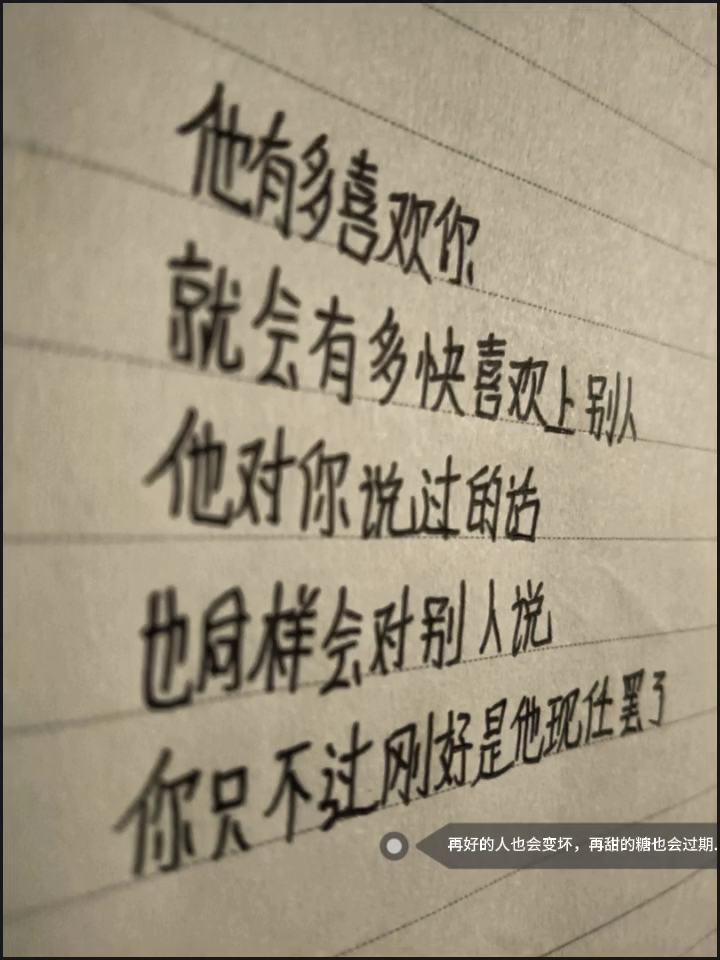 他有多喜欢你
就会有多快喜欢上别人
他对你说过的话
也同样会对别人说
你只不过刚好是他现任罢了
再好的人也会变坏，再甜的糖也会过期.